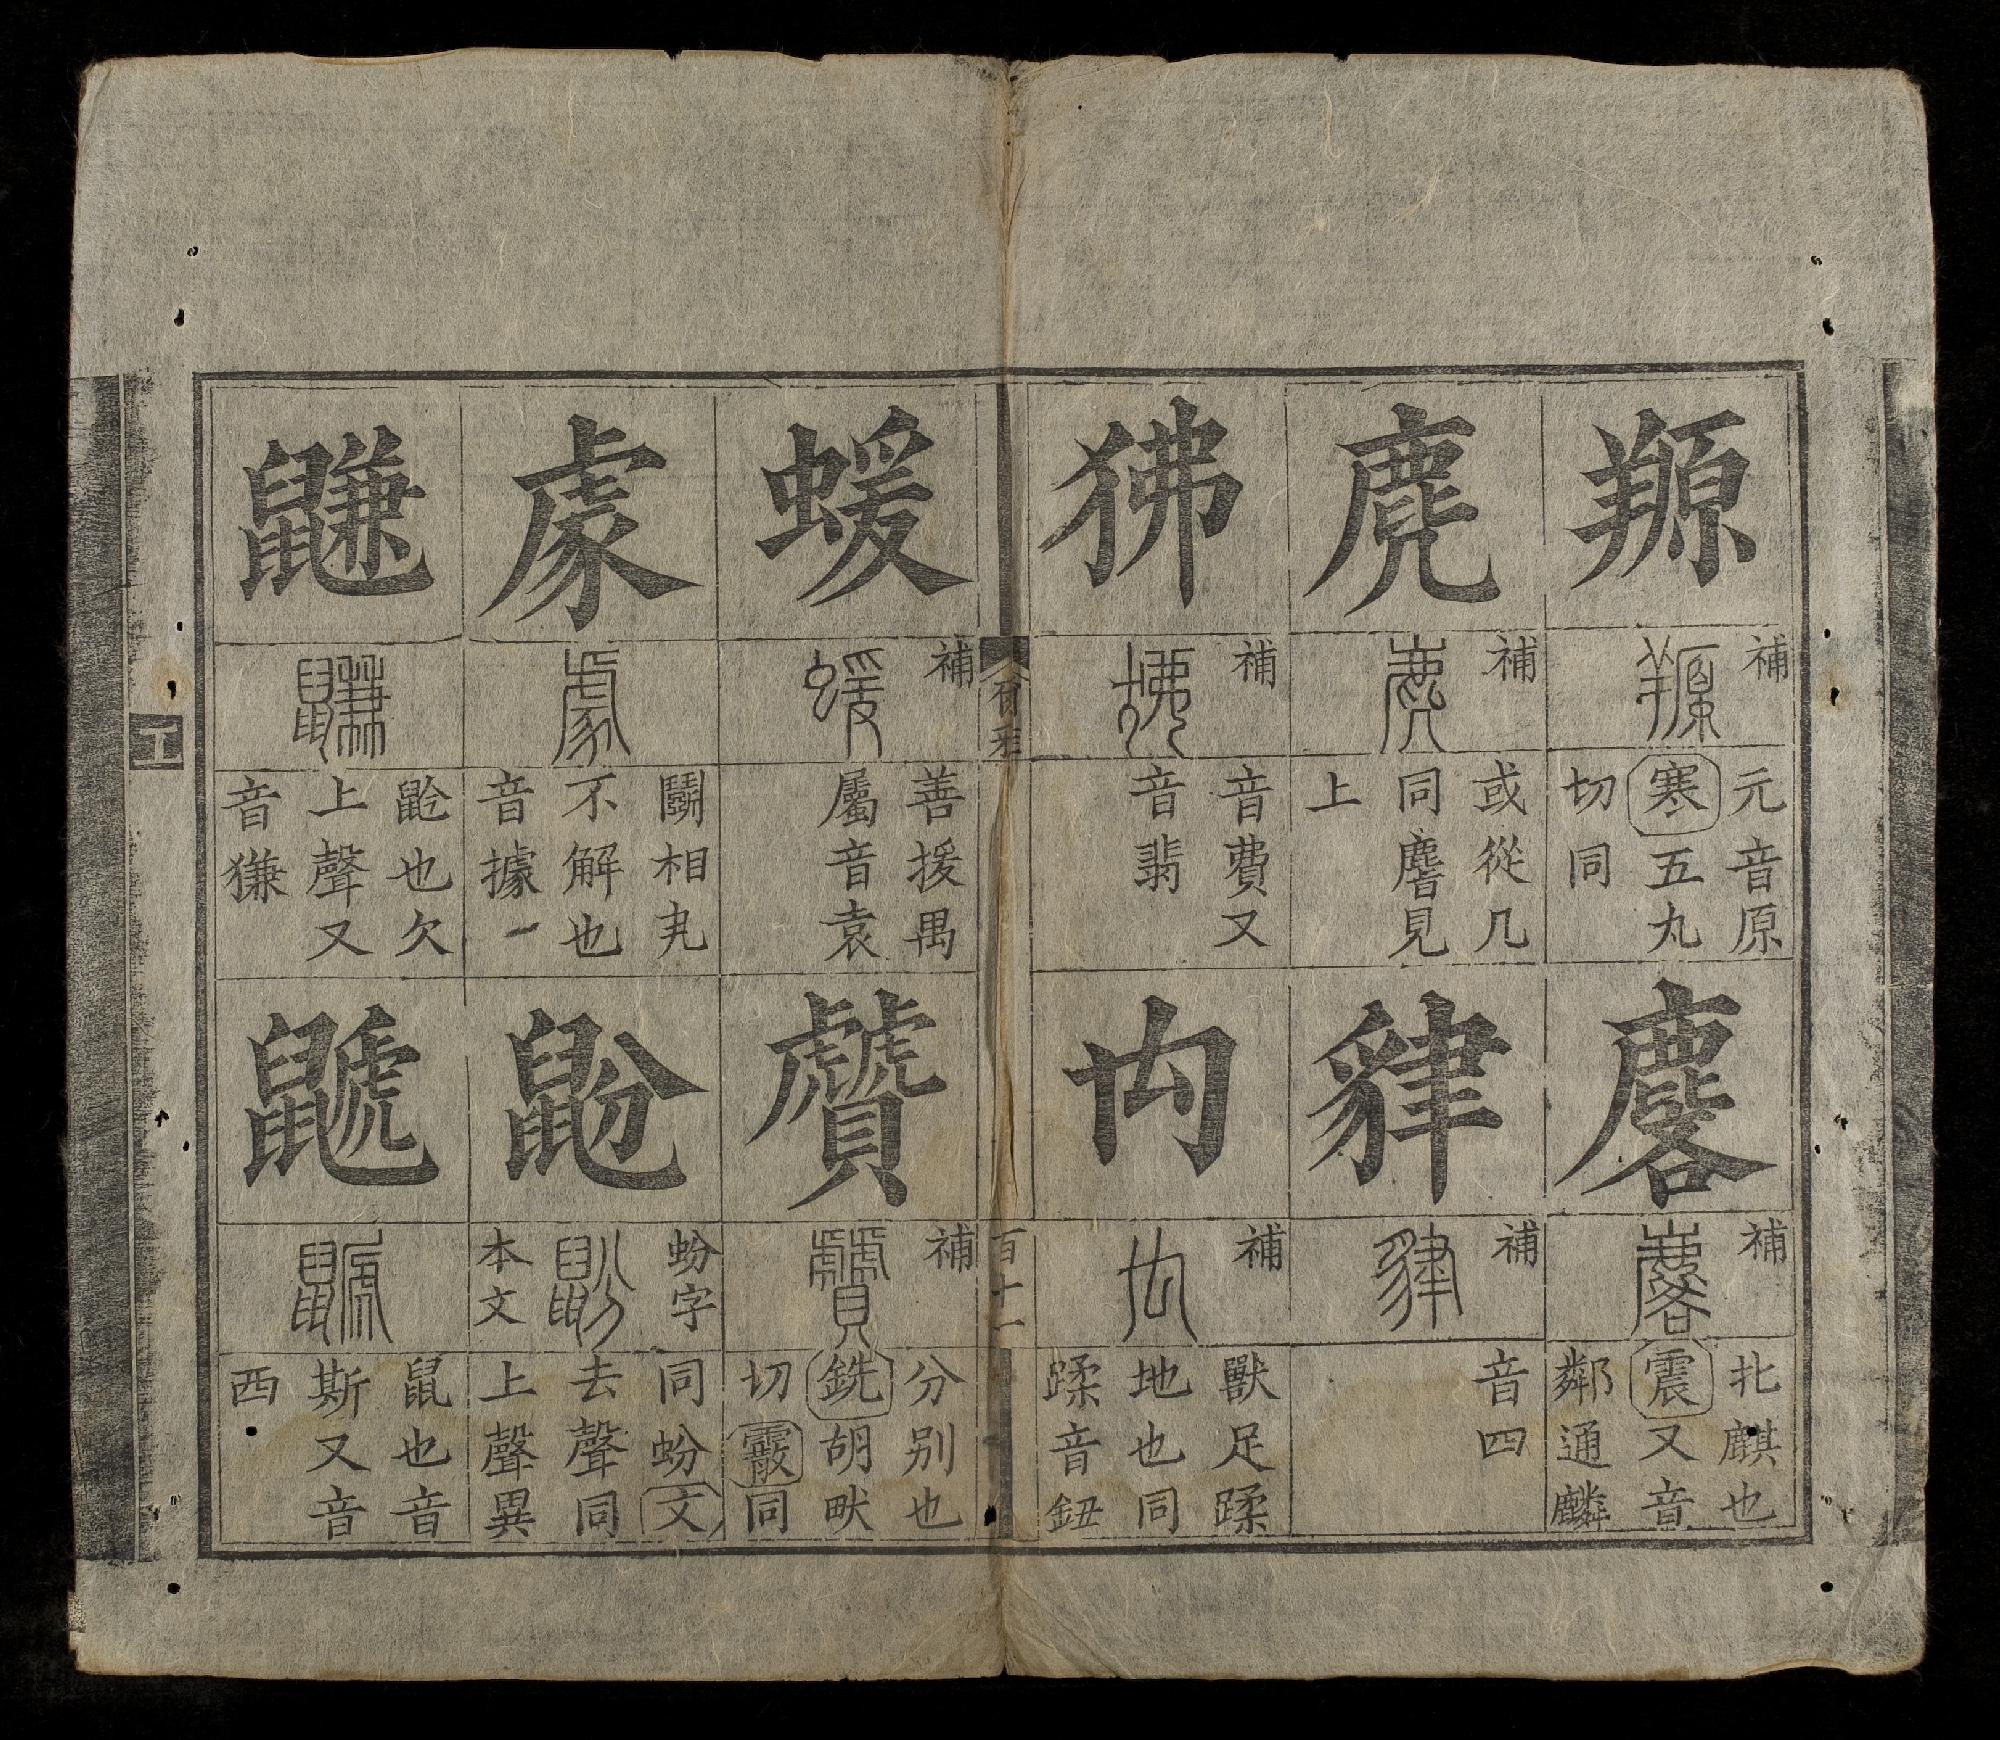 羱
補
元音原
寒五丸
切同
麂
補
或從几
同麔見
上
狒
補
音費又
音翡
麔
補
牝麒也
震又音
鄰通麟
貄
補
音四
禸
補
獸足蹂
地也同
蹂音鈕
爾雅
百十一
蝯
補
善援禺
屬音袁
豦
鬭相丮
不解也
音據一
鼸
鼢也欠
上聲又
音㺌
贙
補
分别也
銑胡畎
切霰同
鼢
蚡字
本文
同蚡文
去聲同
上聲異
鼶
鼠也音
斯又音
西
工